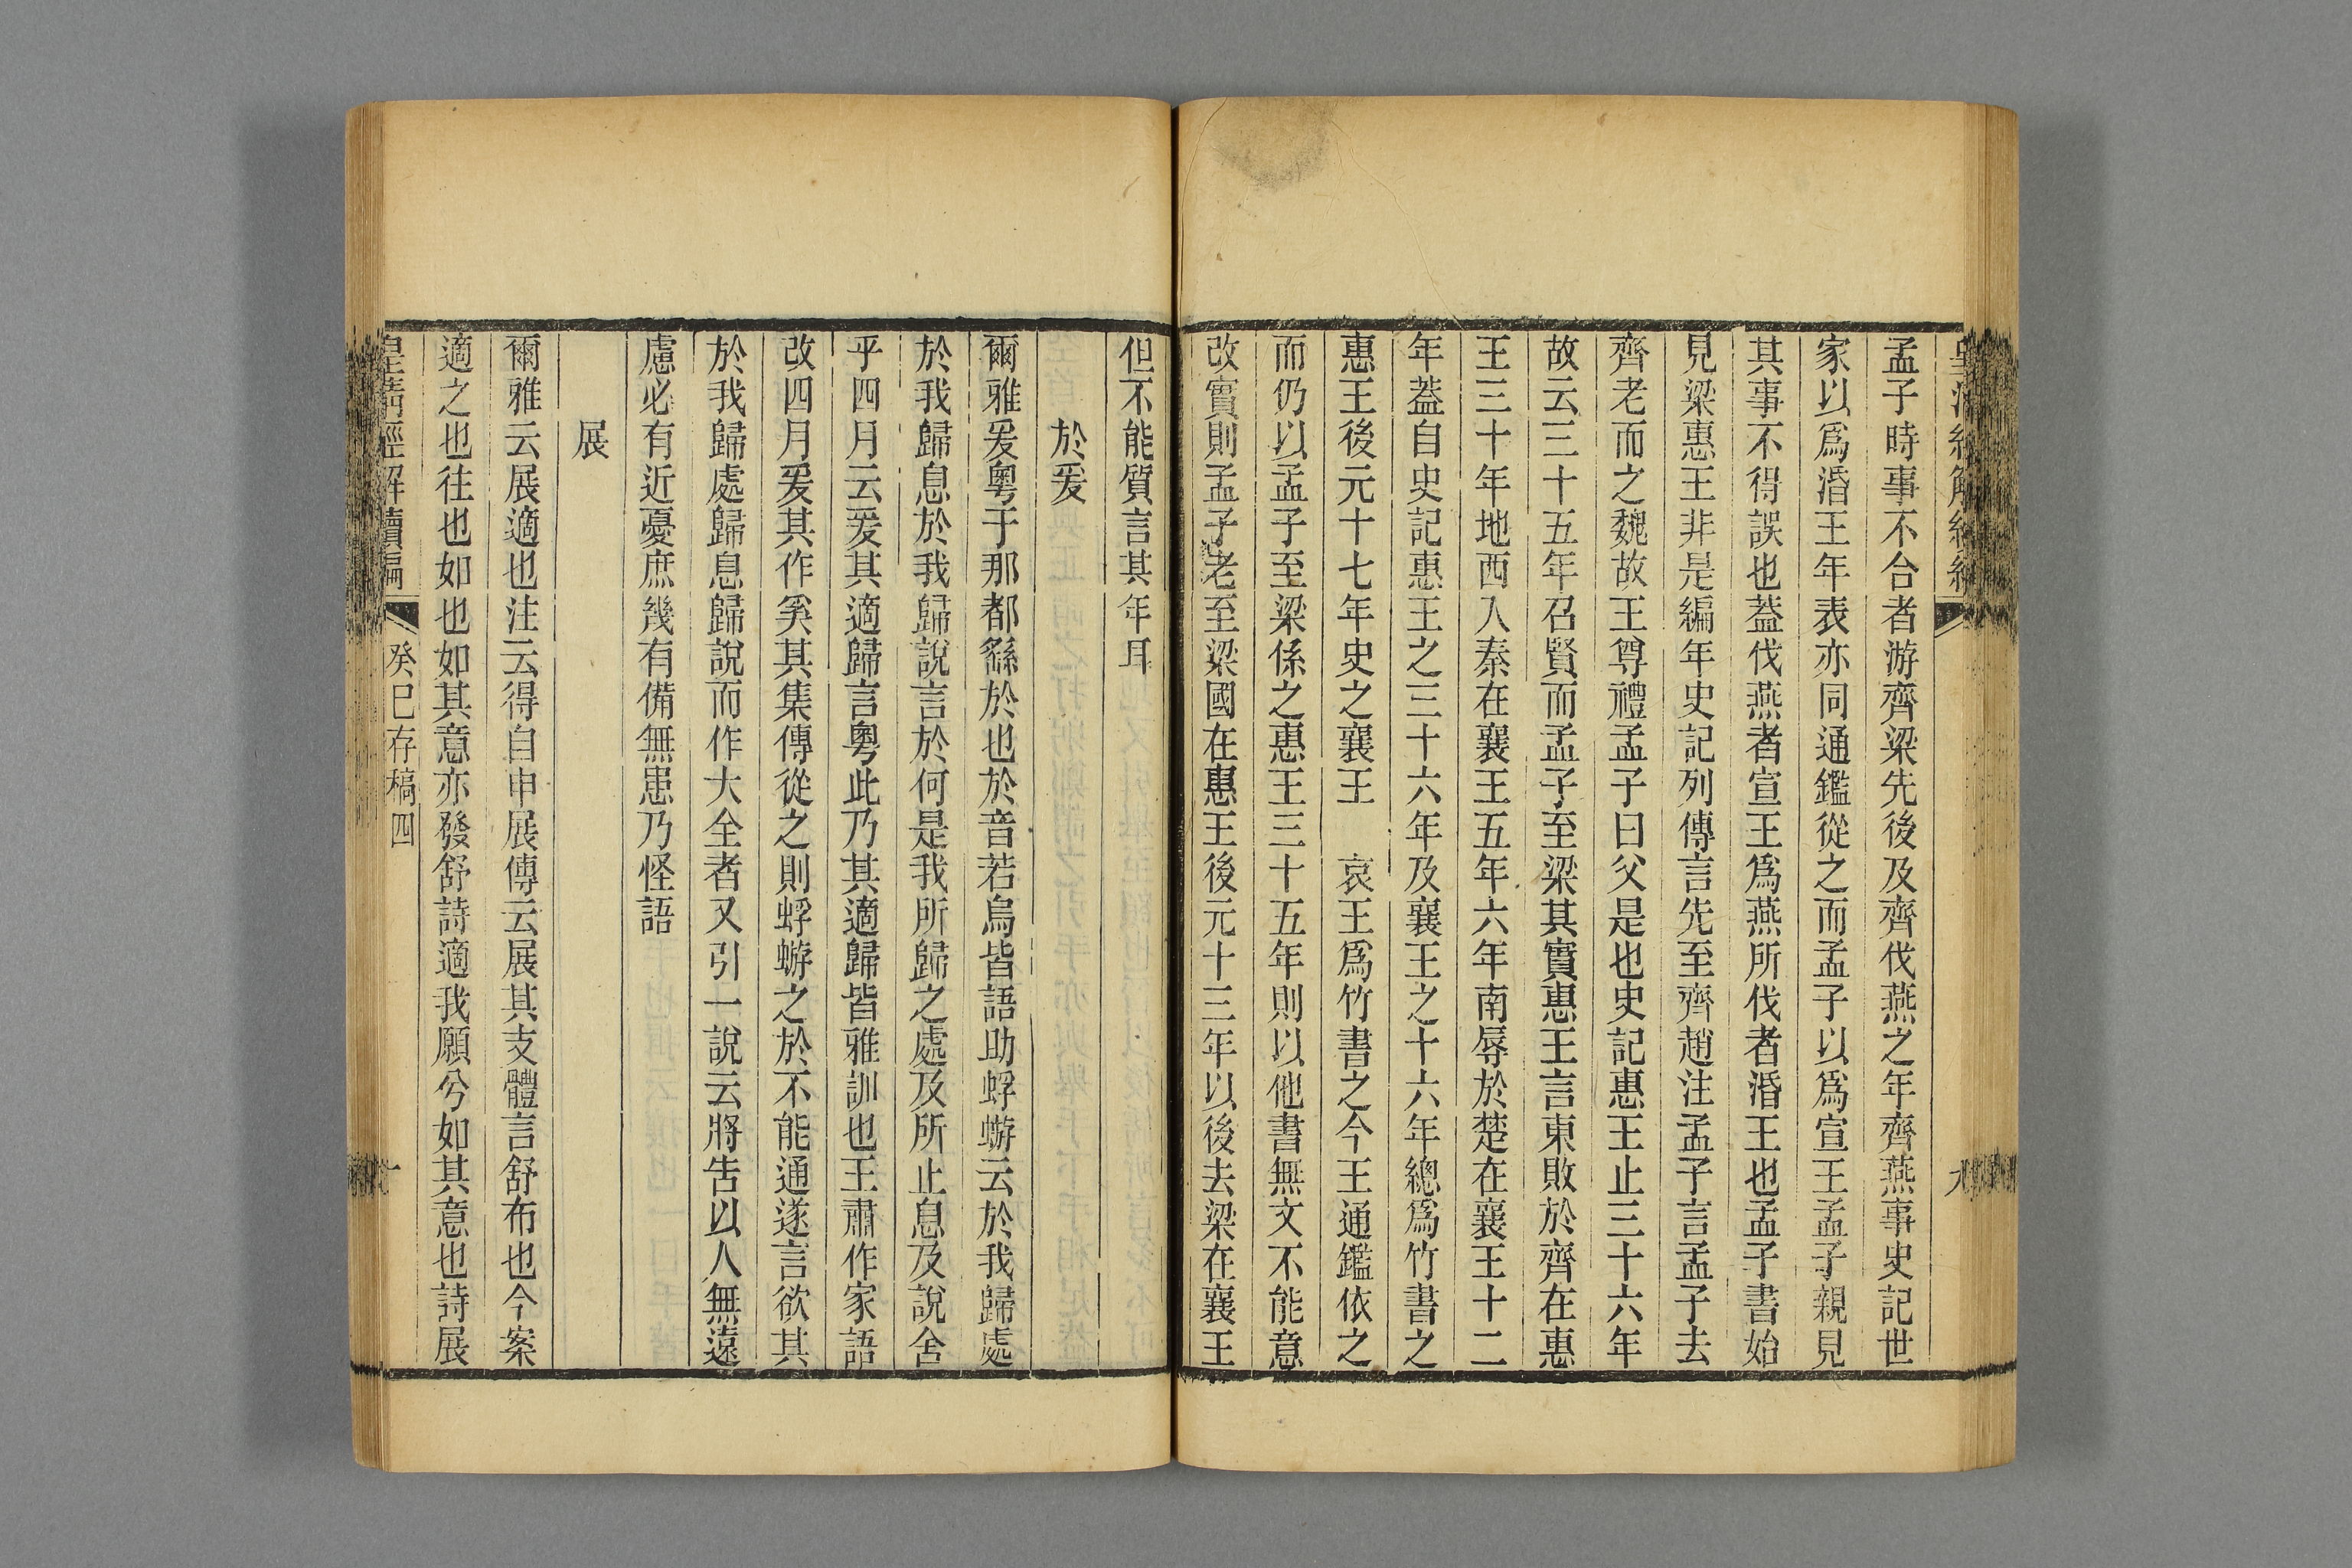 孟子時事不合者游齊梁先後及齊伐燕之年齊燕事史記世
家以爲湣王年表亦同通鑑從之而孟子以爲宣王孟子親見
其事不得誤也葢伐燕者宣王爲燕所伐者湣王也孟子書始
見梁惠王非是編年史記列傳言先至齊趙注孟子言孟子去
齊老而之魏故王尊禮孟子曰父是也史記惠王止三十六年
故云三十五年召賢而孟子至梁其實惠王言東敗於齊在惠
王三十年地西入秦在襄王五年六年南辱於楚在襄王十二
年葢自史記惠王之三十六年及襄王之十六年總爲竹書之
惠王後元十七年史之襄王　哀王爲竹書之今王通鑑依之
而仍以孟子至梁係之惠王三十五年則以他書無文不能意
改實則孟子老至梁國在惠王後元十三年以後去梁在襄王
但不能質言其年耳
於爰
爾雅爰粵于那都繇於也於音若烏皆語助蜉蝣云於我歸處
於我歸息於我歸說言於何是我所歸之處及所止息及說舍
乎四月云爰其適歸言粵此乃其適歸皆雅訓也王肅作家語
改四月爰其作奚其集傳從之則蜉蝣之於不能通遂言欲其
於我歸處歸息歸說而作大全者又引一說云將告以人無遠
慮必有近憂庶幾有備無患乃怪語
展
爾雅云展適也注云得自申展傳云展其支體言舒布也今案
適之也往也如也如其意亦發舒詩適我願兮如其意也詩展
皇清經解續編
癸巳存稿四